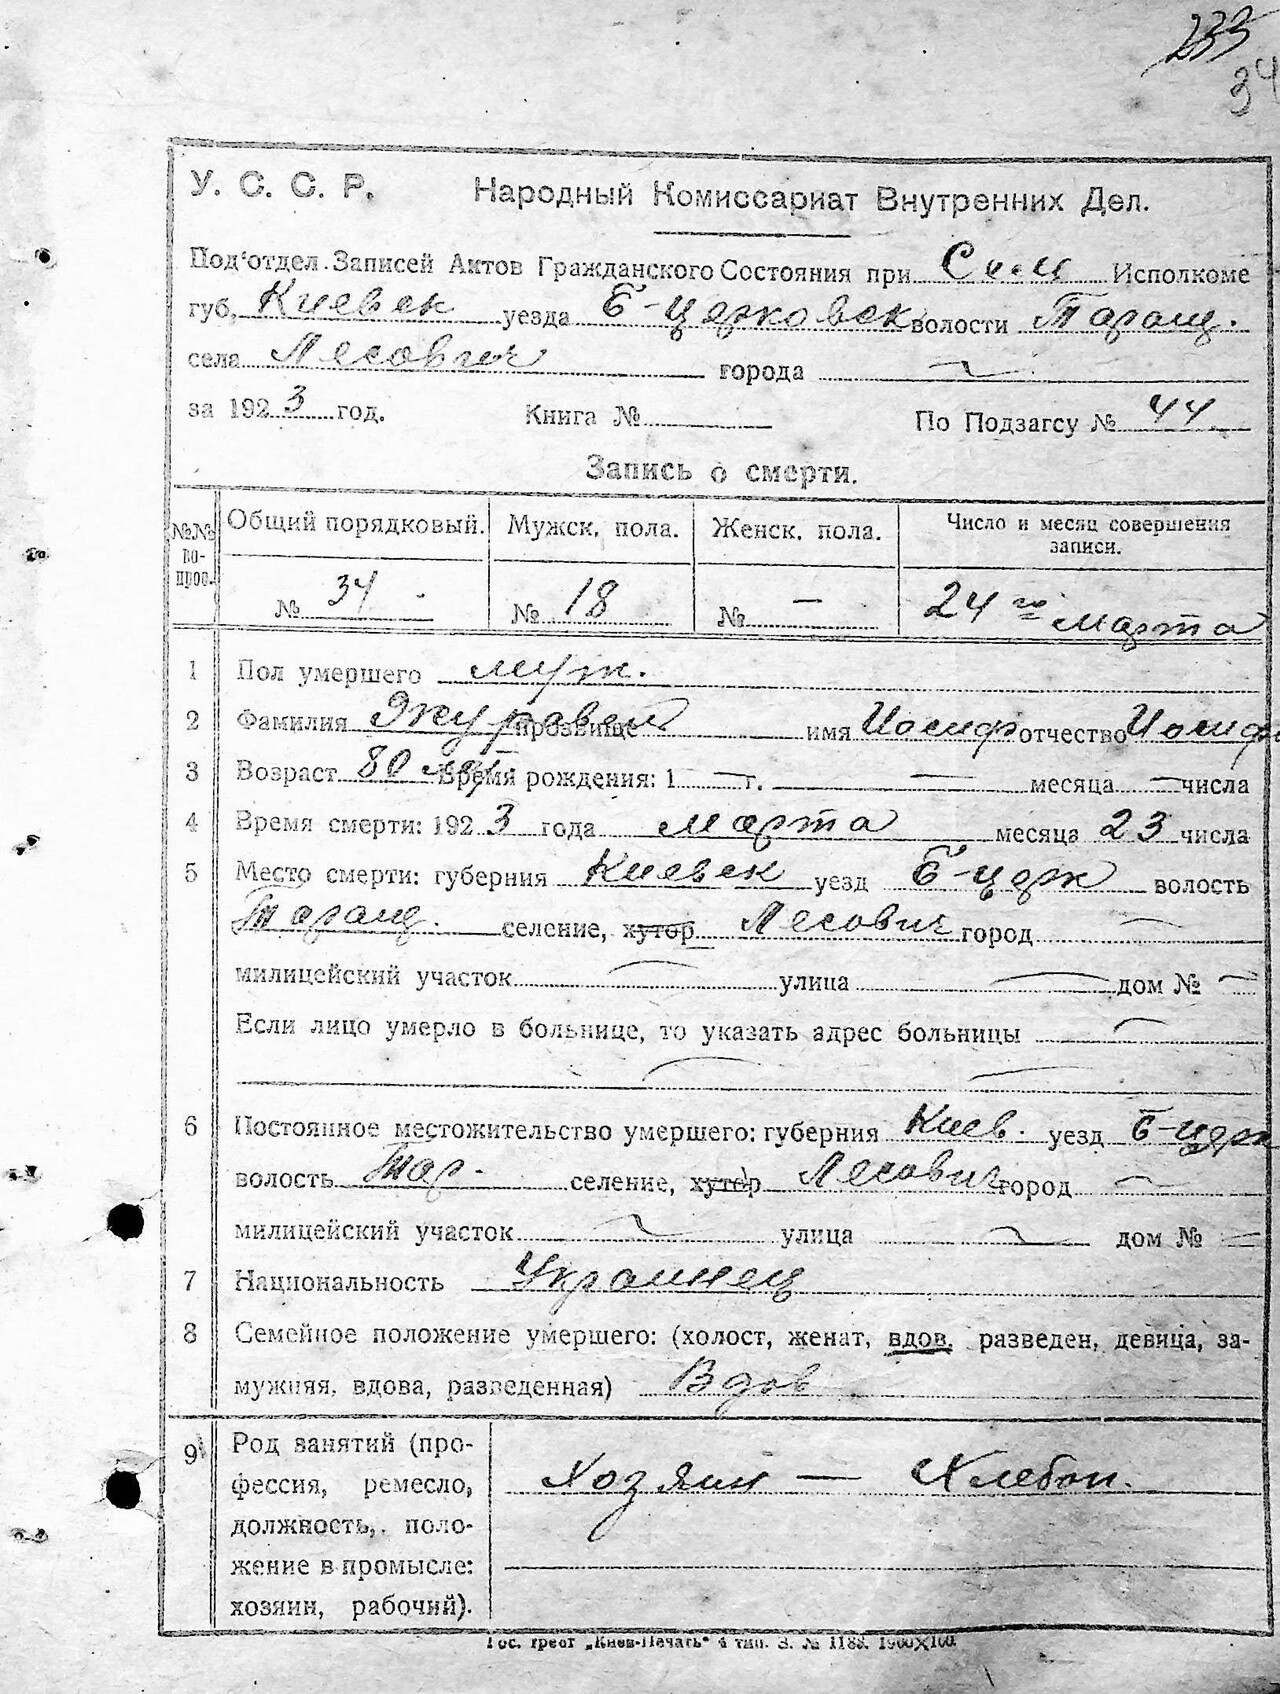 233
34
У. С. С. Р. Народный Комиссариат Внутренних Дел.
Под'отдел Записей Актов Гражданского Состояния при Исполкоме
губ. Киевск уезда Б-Церковск волости Таращ.
села Лесович города
за 1923 год. Книга № По Подзагсу № 44
Запись о смерти.
№№ во-прос. Общий порядковый. Мужск. пола. Женск. пола. Число и месяц совершения записи.
№ 34 № 18 № — 24го Марта
1 Пол умершего муж.
2 Фамилия Журавель прозвище имя Иосиф отчество Иосиф
3 Возраст 80 лет Время рождения: 1 — г. — месяца — числа
4 Время смерти: 1923 года марта месяца 23 числа
5 Место смерти: губерния Киевск уезд Б-церк волость
Таращ. селение, хутор Лесович город —
милицейский участок — улица — дом № —
Если лицо умерло в больнице, то указать адрес больницы —
6 Постоянное местожительство умершего: губерния Киев. уезд Б-церк
волость Тар. селение, хутор Лесович город —
милицейский участок — улица — дом № —
7 Национальность Украинец
8 Семейное положение умершего: (холост, женат, вдов, разведен, девица, за-
мужняя, вдова, разведенная) Вдов
9 Род занятий (про-
фессия, ремесло, Хозяин — Хлебоп.
должность, поло-
жение в промысле:
хозяин, рабочий).
Гос. трест „Киев-Печать“ 4 тип. З. № 1188. 1900×100.